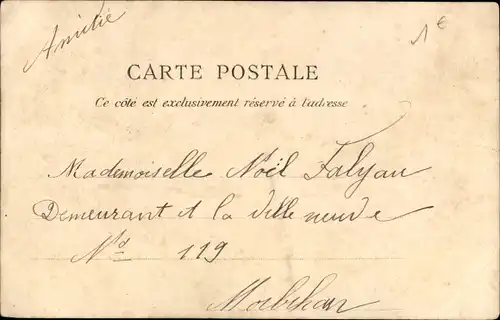 Amitié
1€
CARTE POSTALE
Ce côté est exclusivement réservé à l'adresse
Mademoiselle Noël Falyau
Demeurant A la Ville neuve
Nº 119
Morbihan